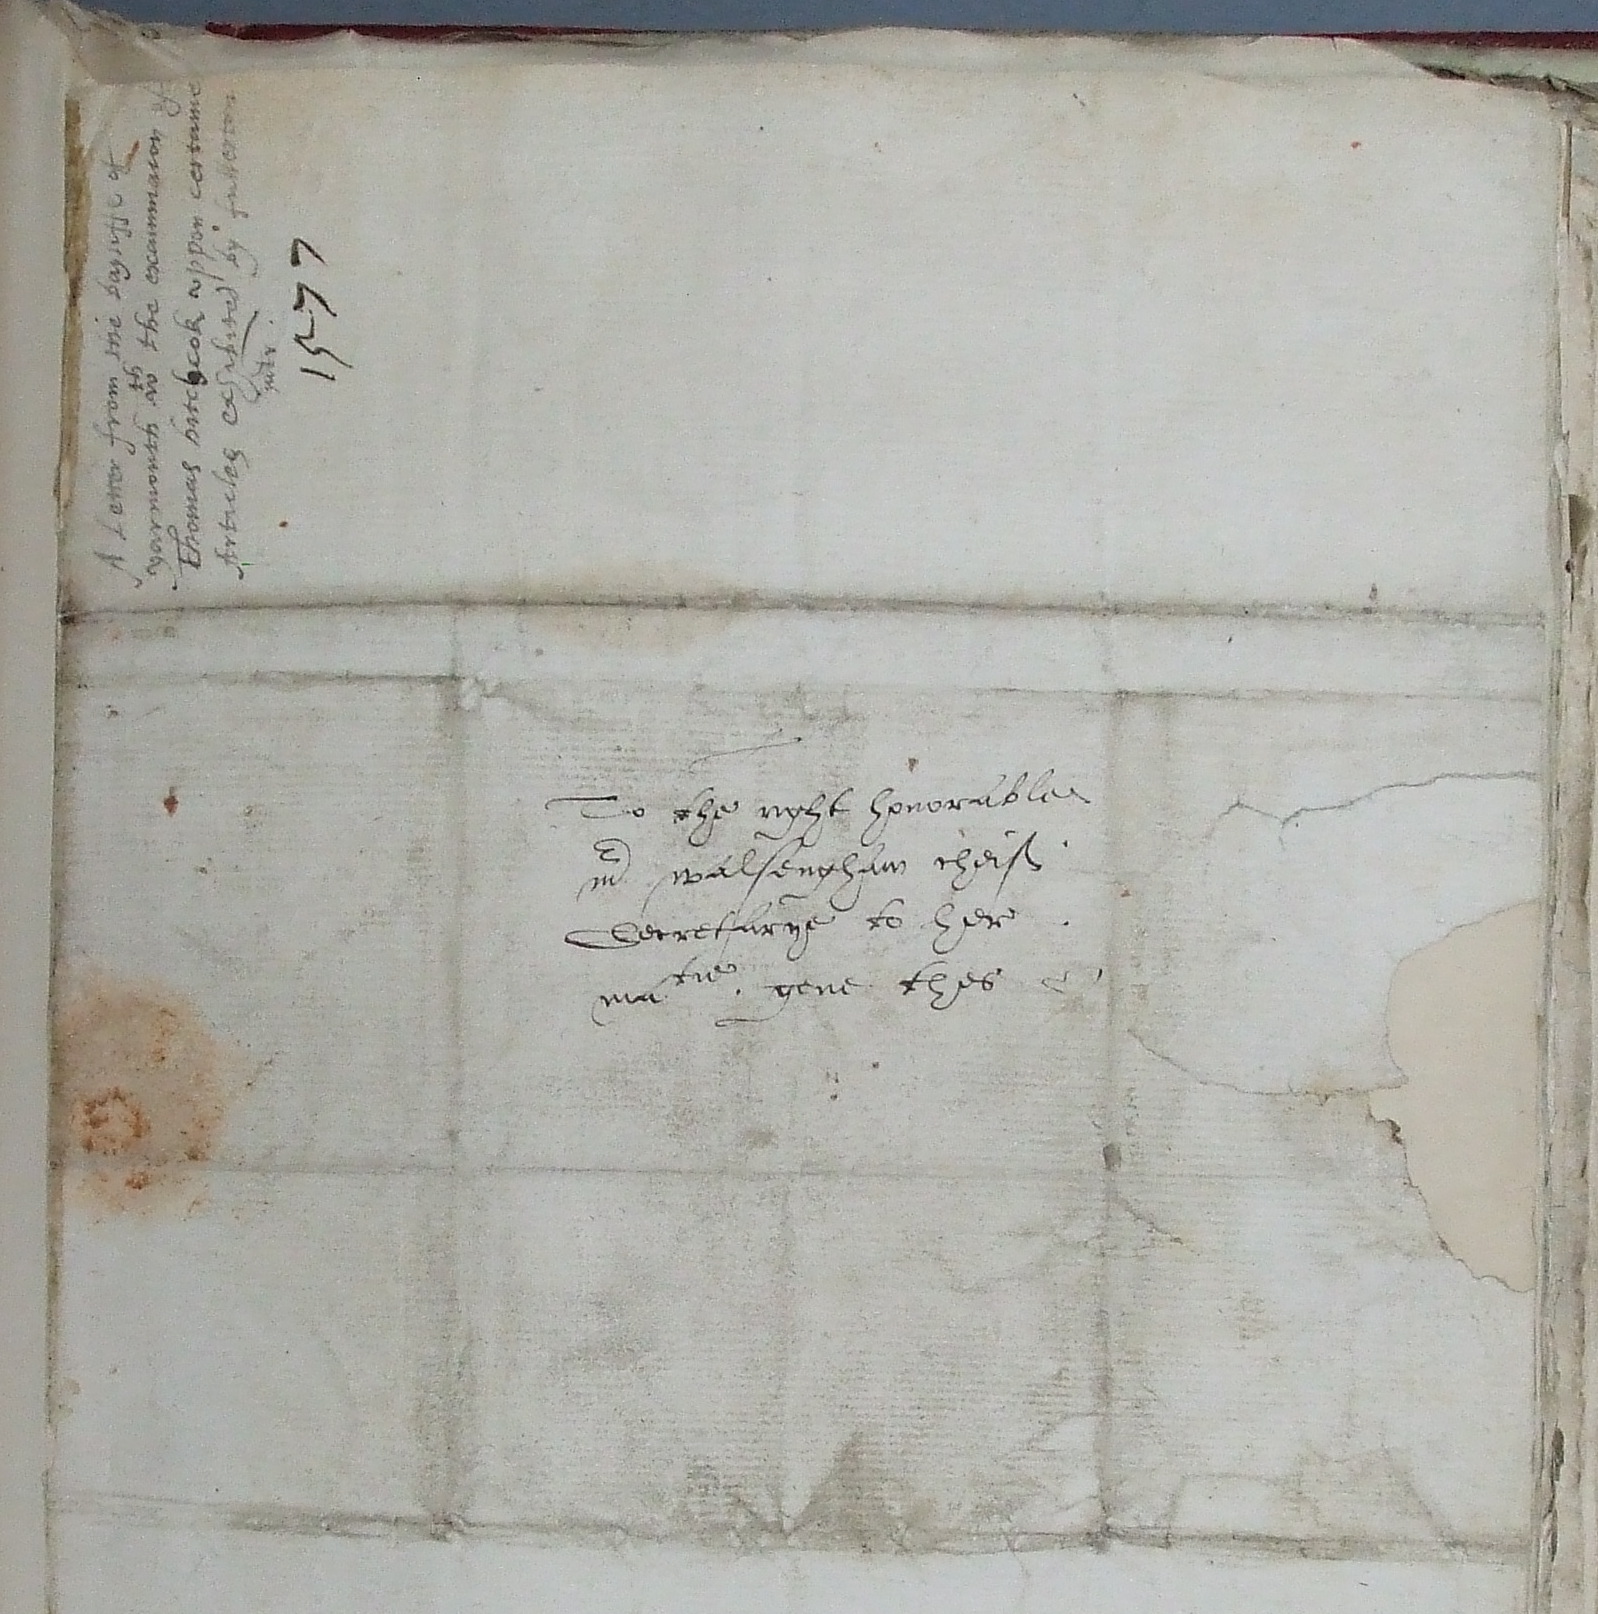 A Letter from the baylyffe of
yarmouth wth the examinacon of
Thomas hitchcok vppon certaine
Articles exhibited by fullerton
1577
To the right honorable
mr walsengham cheiff
Secretarye to her
matie. geue thes